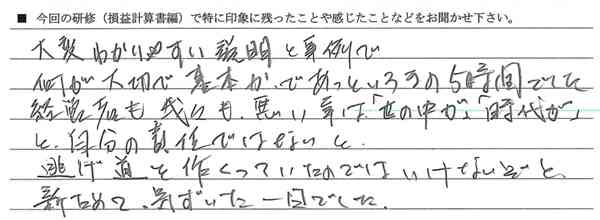 ■ 今回の研修（損益計算書編）で特に印象に残ったことや感じたことなどをお聞かせ下さい。
大変わかりやすい説明と事例で
何が大切で基本か、であっというまの5時間でした
経営者も我々も、悪い事は「世の中が」「時代が」
と、自分の責任ではないと
逃げ道を作くっていたのではいけないぞと、
新ためて、気ずいた一日でした。